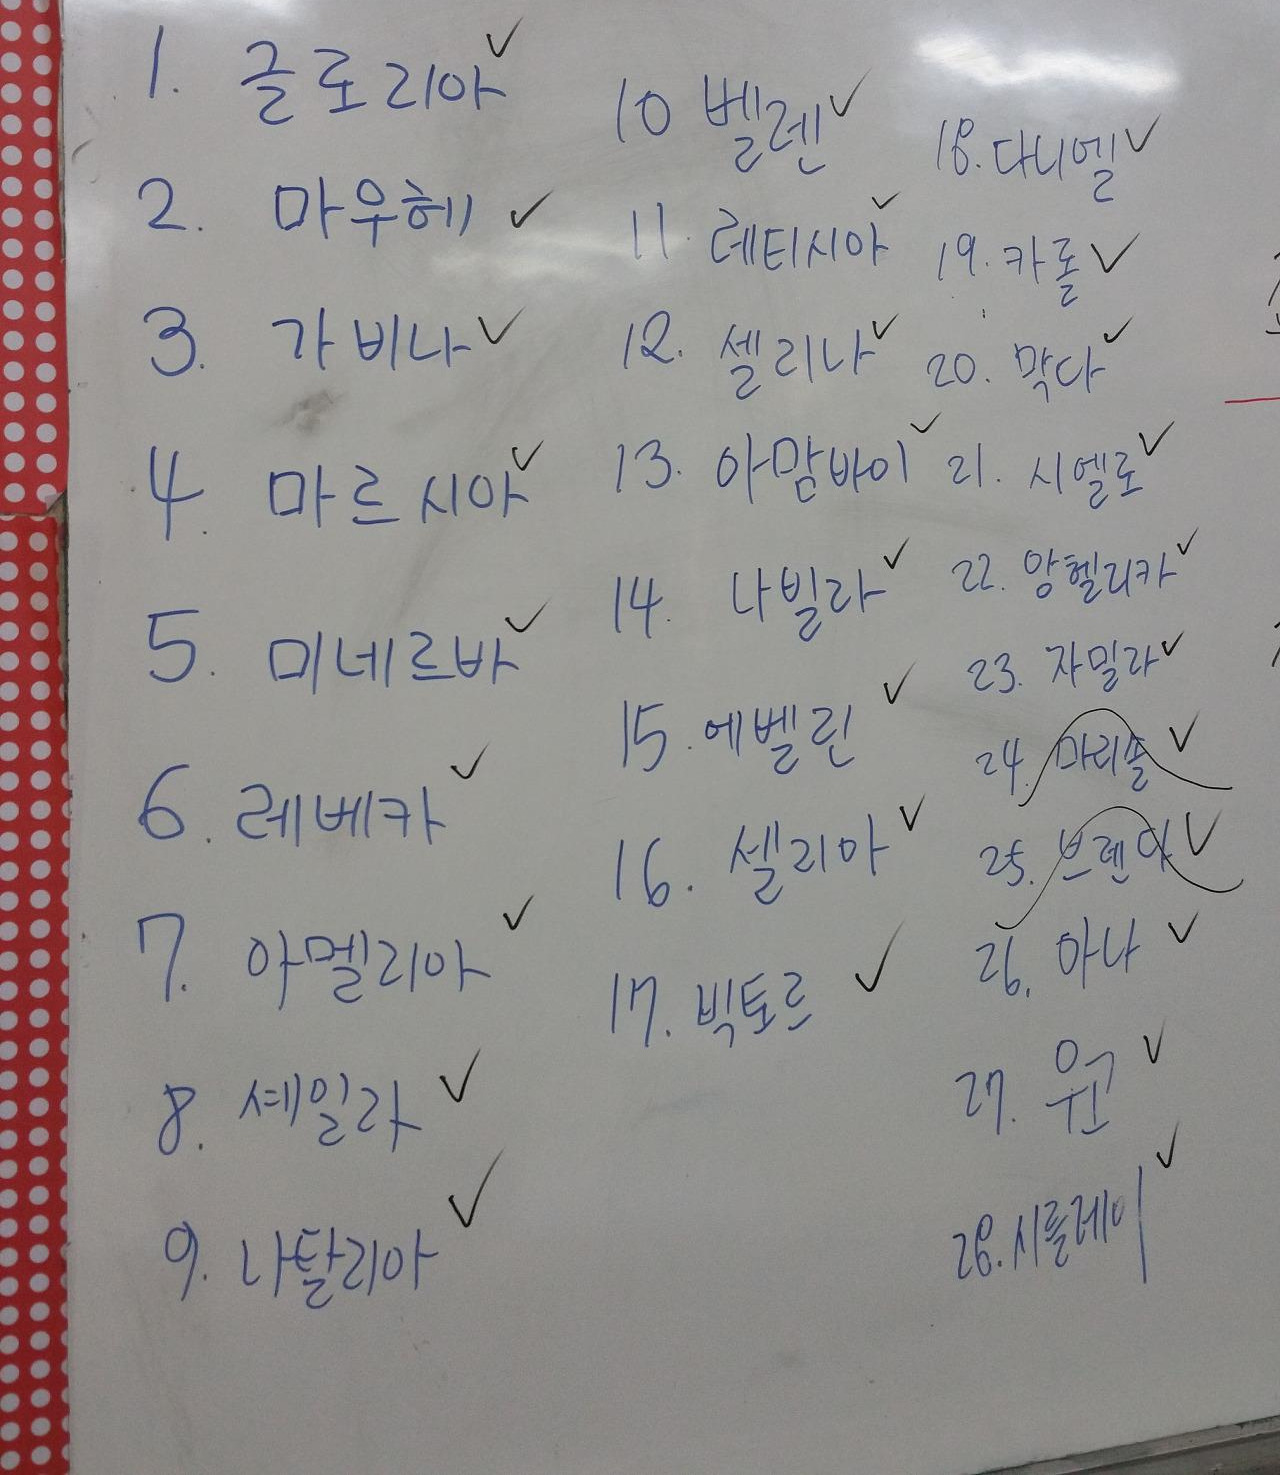 1. 글로리아
2. 마우헤
3. 가비나
4. 마르시아
5. 미네르바
6. 레베카
7. 아멜리아
8. 셰일라
9. 나탈리아
10 벨렌
11. 레티시아
12. 셀리나
13. 아맘바이
14. 나빌라
15. 에벨린
16. 셀리아
17. 빅토르
18. 다니엘
19. 카롤
20. 막다
21. 시엘로
22. 앙헬리카
23. 자밀라
24. 마리솔
25. 브렌다
26. 아나
27.
28. 시르레이